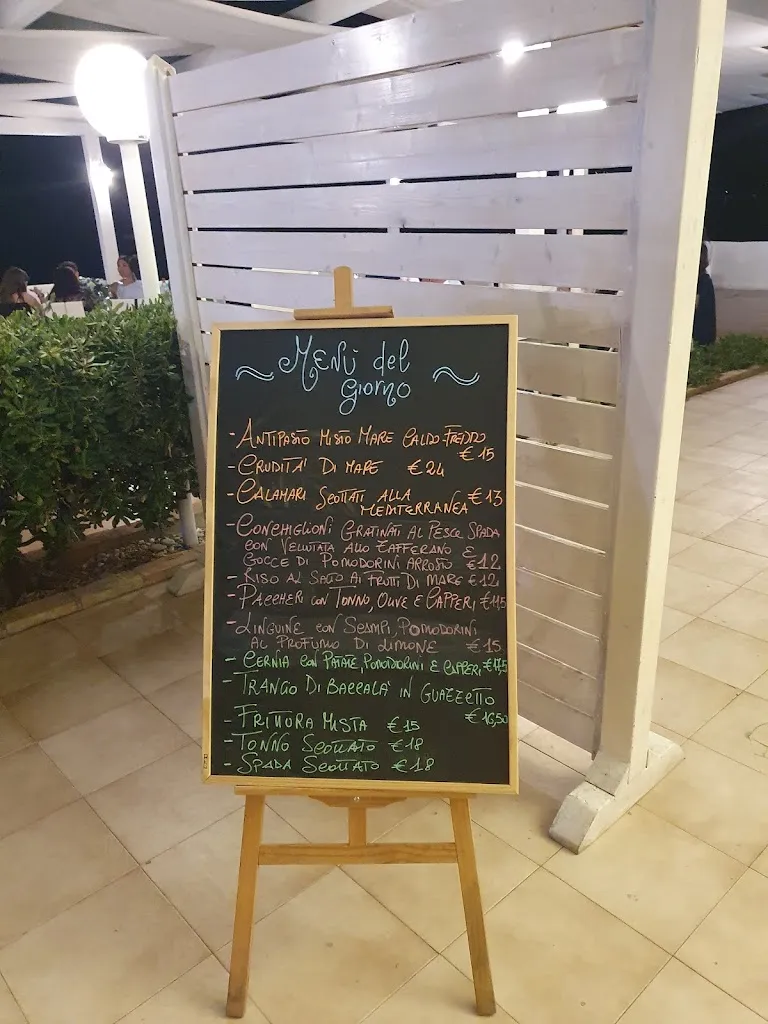 Menù del
giorno
- ANTIPASTO MISTO MARE CALDO-FREDDO
€ 15
- CRUDITA' DI MARE € 24
- CALAMARI SCOTTATI ALLA € 13
MEDITERRANEA
- CONCHIGLIONI GRATINATI AL PESCE SPADA
CON VELLUTATA ALLO ZAFFERANO E
GOCCE DI POMODORINI ARROSTO € 12
- RISO AL SALTO AI FRUTTI DI MARE € 12
- PACCHERI CON TONNO, OLIVE E CAPPERI
- LINGUINE CON SCAMPI, POMODORINI
AL PROFUMO DI LIMONE € 15
- CERNIA CON PATATE, POMODORINI E CAPPERI € 17,5
- TRANCIO DI BACCALA' IN GUAZZETTO
€ 16,50
- FRITTURA MISTA € 15
- TONNO SCOTTATO € 18
- SPADA SCOTTATO € 18